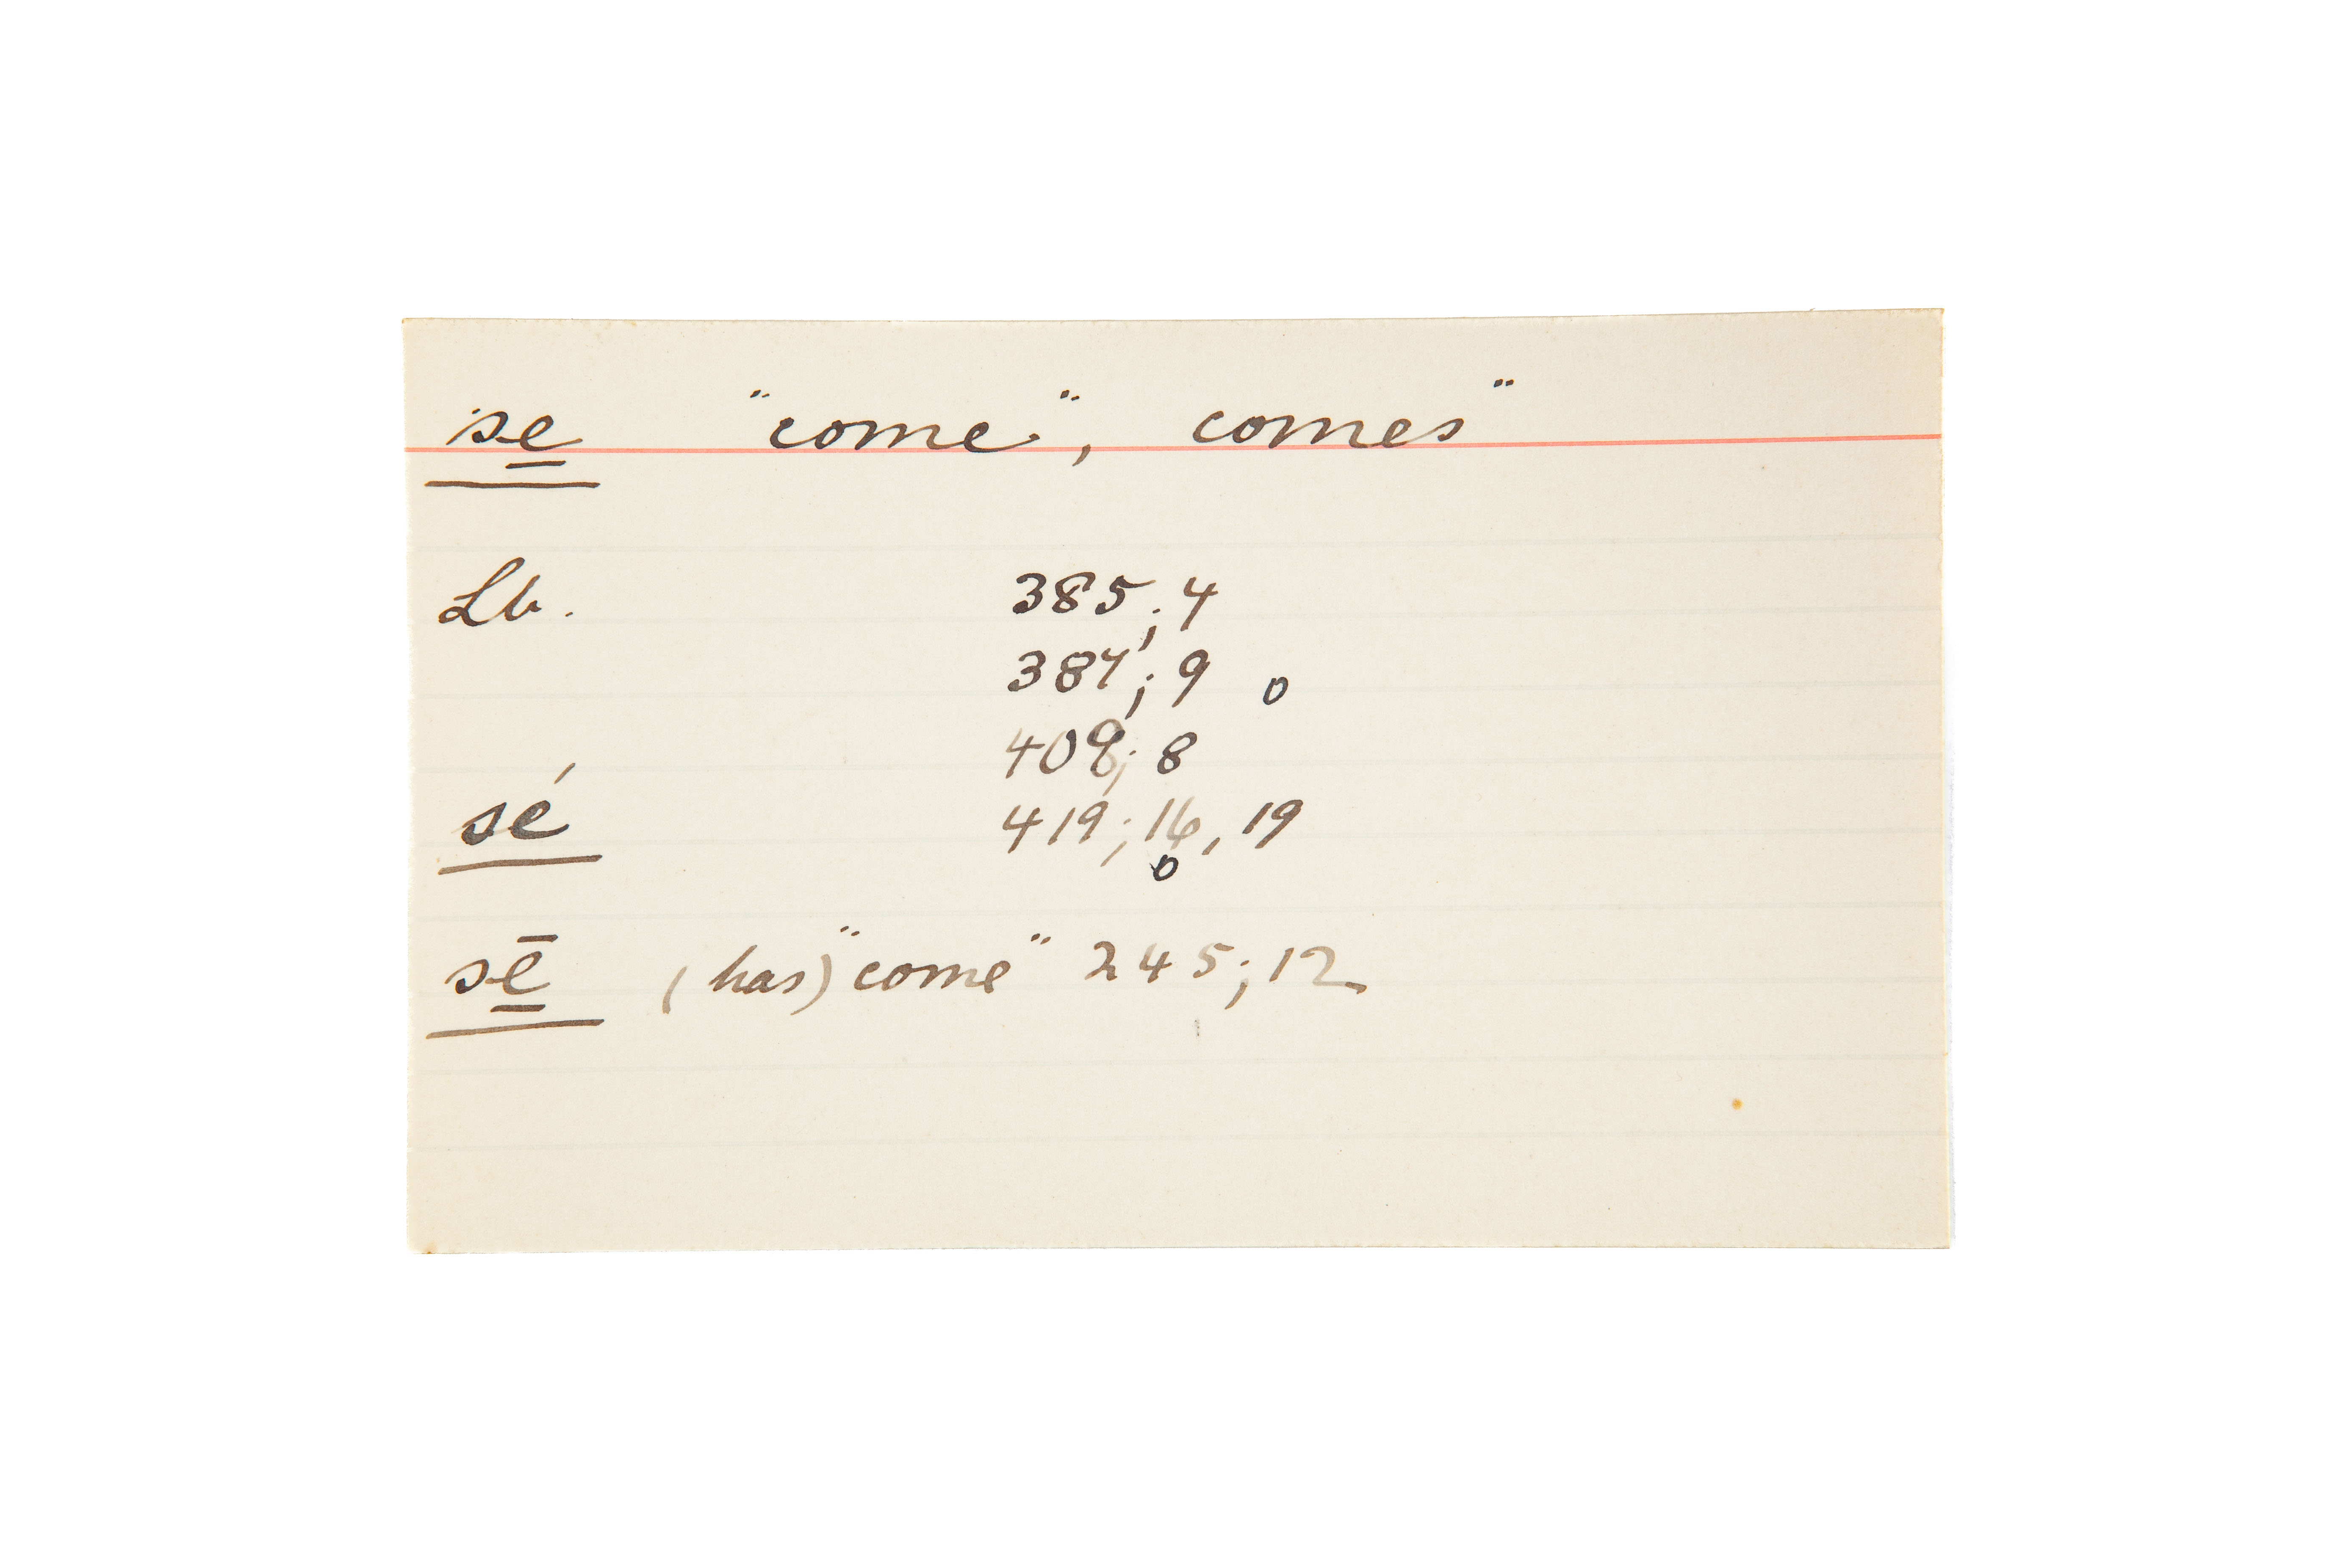 se̱ "come", comes"
Lb. 385; 4
387; 9 o
409; 8
sé 419; 16, 19
o
sē̱ (has) "come" 245; 12